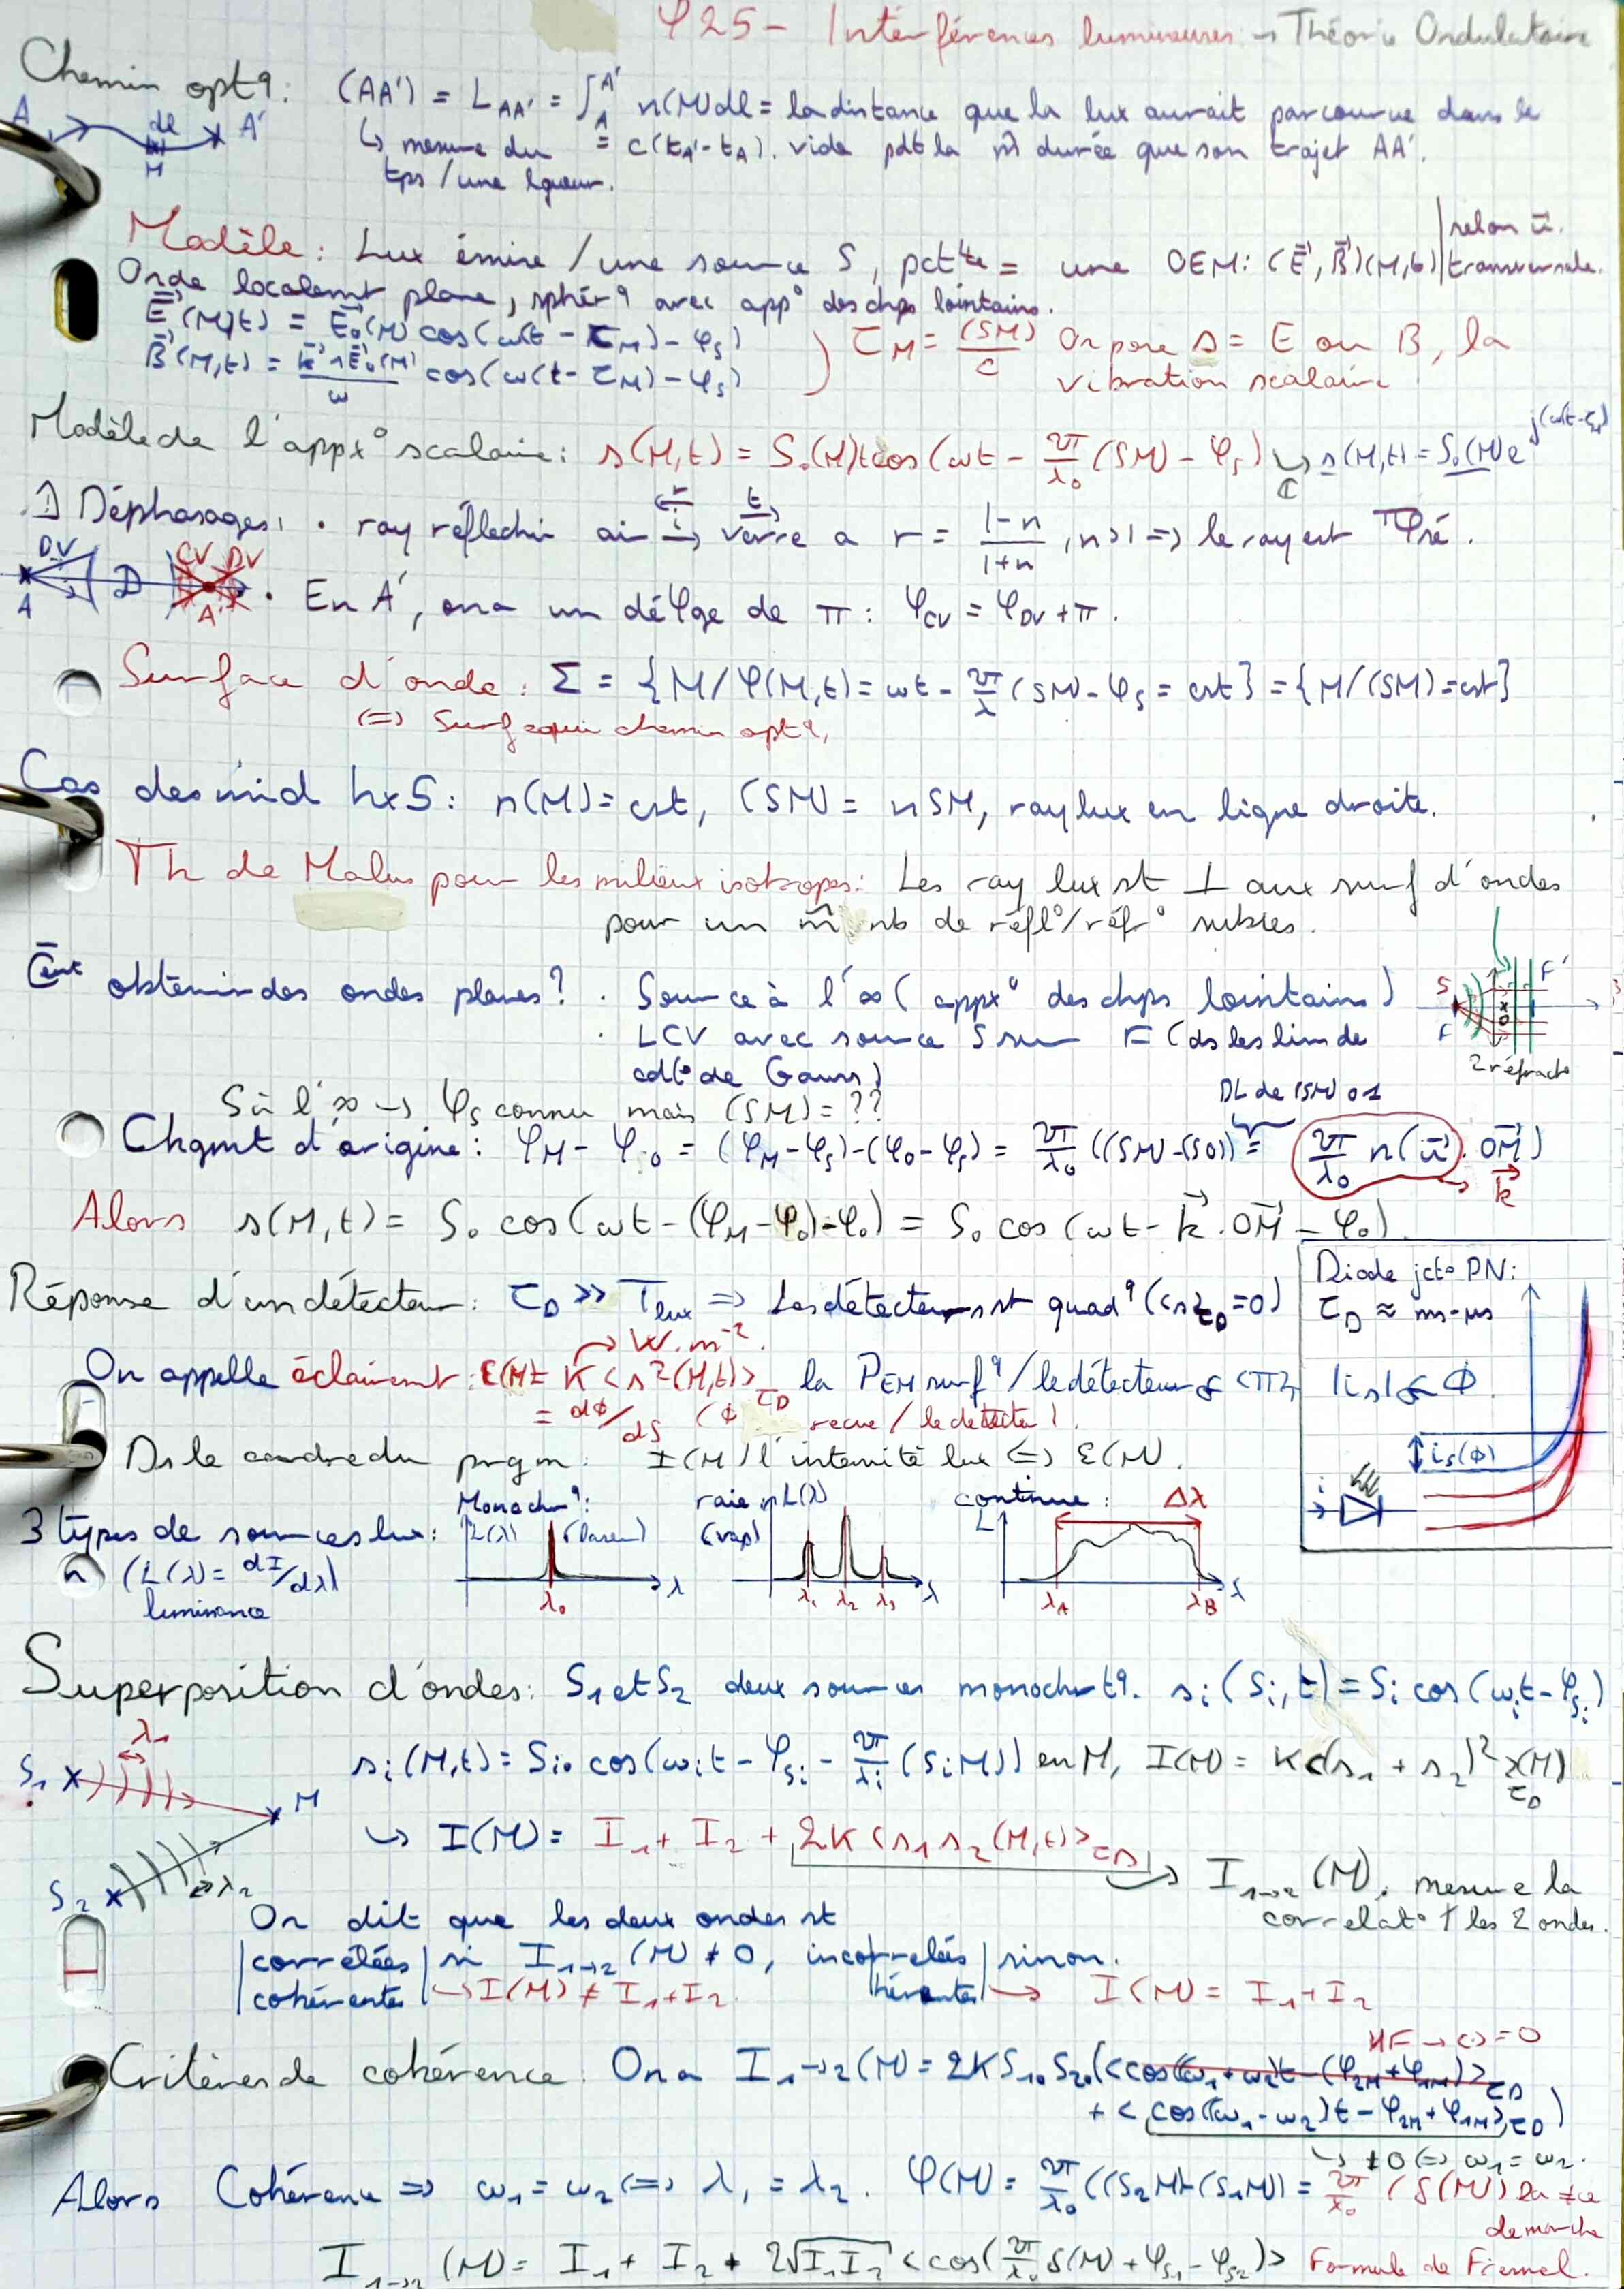 φ25 - Interférences lumineuses → Théorie Ondulatoire
Chemin optq: (AA') = L_AA' = ∫_A^A' n(M)dl = la distance que la lux aurait parcourue dans le
A dl M A'
↳ mesure du = c(t_A' - t_A). vide pdt la m̂ durée que son trajet AA'.
tps / une lgueur.
Modèle: Lux émise / une source S, pctlle = une OEM: (E⃗, B⃗)(M,t) | selon u⃗. transversale.
Onde localemt plane, sphérq avec app° des chps lointains.
E⃗(M,t) = E⃗₀(M) cos(ω(t - τ_M) - φ_s)
B⃗(M,t) = k⃗∧E⃗₀(M)/ω cos(ω(t - τ_M) - φ_s)
τ_M = (SM)/c On pose s = E ou B, la
vibration scalaire
Modèle de l'appx° scalaire: s(M,t) = S₀(M) cos(ωt - 2π/λ₀ (SM) - φ_s) ↳ℂ s(M,t) = S₀(M)e^j(ωt-φ_M)
1) Déphasages: • ray réfléchi air → verre a r = (1-n)/(1+n), n>1 => le ray est πφré.
r i t
DV A D CV DV A'
• En A', on a un déφge de π: φ_CV = φ_DV + π.
Surface d'onde: Σ = {M / φ(M,t) = ωt - 2π/λ (SM) - φ_s = cst} = {M / (SM) = cst}
(=) Surf equi chemin optq,
Cas des mid hxS: n(M) = cst, (SM) = nSM, ray lux en ligne droite.
Th de Malus pour les milieux isotropes: Les ray lux st ⊥ aux surf d'ondes
pour un m̂ nb de réfl°/réfr° subies.
C̄ent obtenir des ondes planes? • Source à l'∞ (appx° des chps lointains)
• LCV avec source S sur F (ds les lim de
cdt° de Gauss)
S F O F' Σréfracté
S à l'∞ → φ_s connu mais (SM) = ??
DL de (SM) o1
Chgmt d'origine: φ_M - φ₀ = (φ_M - φ_s) - (φ₀ - φ_s) = 2π/λ₀ ((SM) - (SO)) = 2π/λ₀ n(u⃗ . OM⃗)
→ k⃗
Alors s(M,t) = S₀ cos(ωt - (φ_M - φ₀) - φ₀) = S₀ cos(ωt - k⃗ . OM⃗ - φ₀)
Réponse d'un détecteur: τ_D >> T_lux => Les détecteurs st quadq (<s>_τD = 0)
→ W.m⁻²
On appelle éclairemt: ε(M) = K <s²(M,t)>_τD la P_EM surfq / le détecteur α <π>,
= dΦ/dS (Φ recue / le détecteur).
Ds le cadre du prgm: I(M) l'intensité lux (=) ε(M).
Diode jct° PN:
τ_D ≈ ms-μs
|i_s| α Φ
i_s(Φ)
i
3 types de sources lux: Monochrq: L(λ) (laser) λ₀ λ
raie L(λ) (vap) λ₁ λ₂ λ₃ λ
continue: L Δλ λ_A λ_B λ
(L(λ) = dI/dλ)
luminance
Superposition d'ondes: S₁ et S₂ deux sources monochrtq. s_i(S_i,t) = S_i cos(ω_i t - φ_si)
S₁ λ₁ M S₂ λ₂
s_i(M,t) = S_i₀ cos(ω_i t - φ_si - 2π/λ_i (S_iM)) en M, I(M) = K<(s₁ + s₂)²>(M)_τD
↳ I(M) = I₁ + I₂ + 2K<s₁s₂(M,t)>_τD
→ I₁→₂(M). mesure la
correlat° / les 2 ondes.
On dit que les deux ondes st
|corrélées| si I₁→₂(M) ≠ 0, incorrélés | sinon.
|cohérentes| → I(M) ≠ I₁ + I₂ hérentes| → I(M) = I₁ + I₂
HF → <.> = 0
Critères de cohérence: On a I₁→₂(M) = 2KS₁₀S₂₀(<cos((ω₁+ω₂)t - (φ₂M + φ₁M))>_τD
+ <cos((ω₁-ω₂)t - φ₂M + φ₁M)>_τD)
↳ ≠0 (=) ω₁ = ω₂.
Alors Cohérence => ω₁ = ω₂ (=) λ₁ = λ₂. φ(M) = 2π/λ₀ ((S₂M) - (S₁M)) = 2π/λ₀ (δ(M)) la ≠ce
de marche
I₁→₂(M) = I₁ + I₂ + 2√I₁I₂ <cos(2π/λ₀ δ(M) + φ_s1 - φ_s2)> Formule de Fresnel.